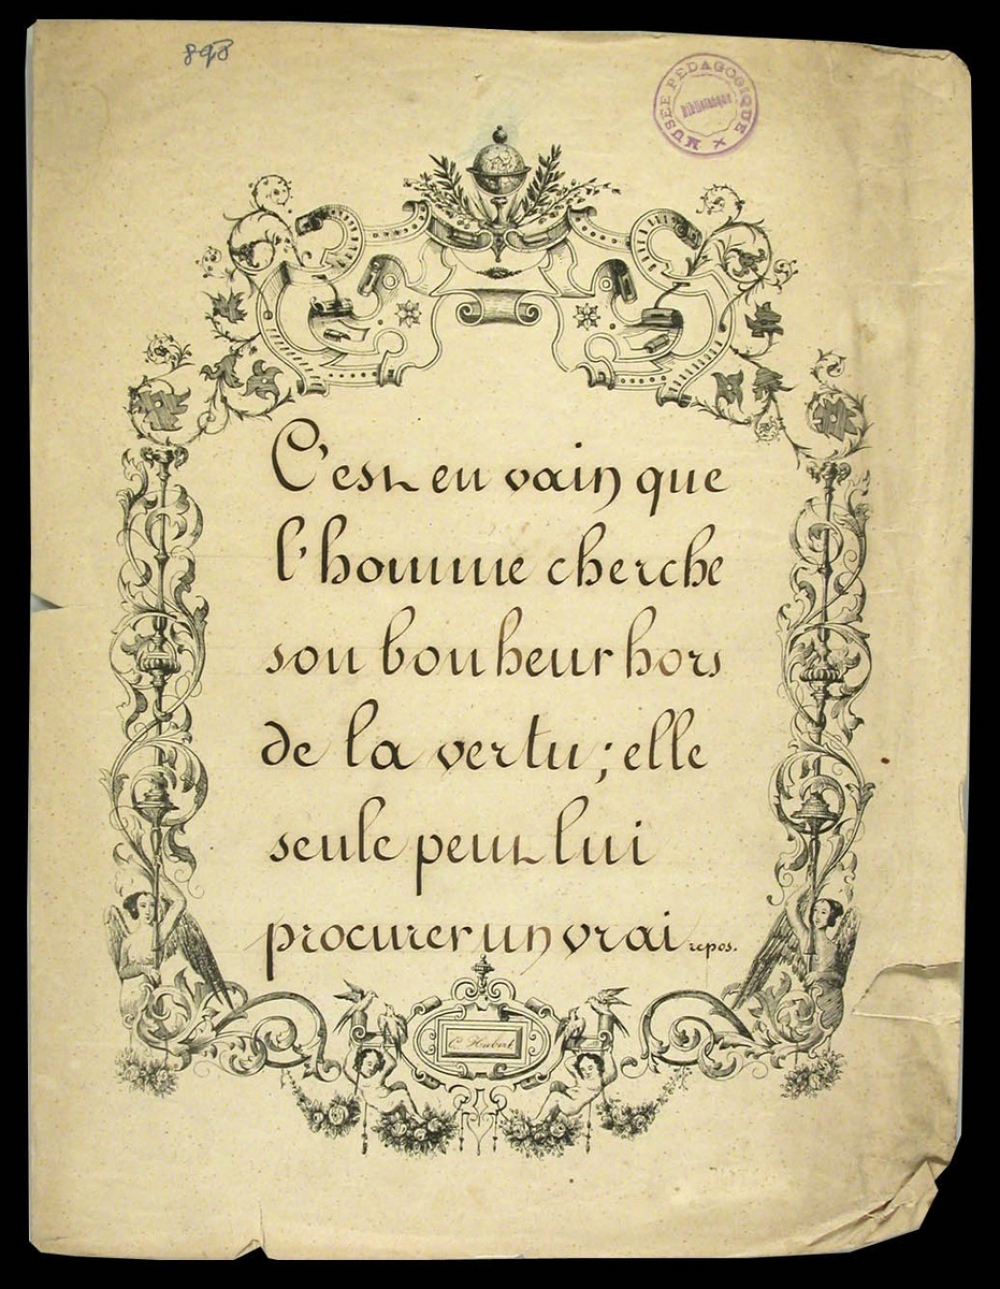 898
MUSÉE PÉDAGOGIQUE
Bibliothèque
C'est en vain que
l'homme cherche
son bonheur hors
de la vertu ; elle
seule peut lui
procurer un vrai repos.
C. Hubert